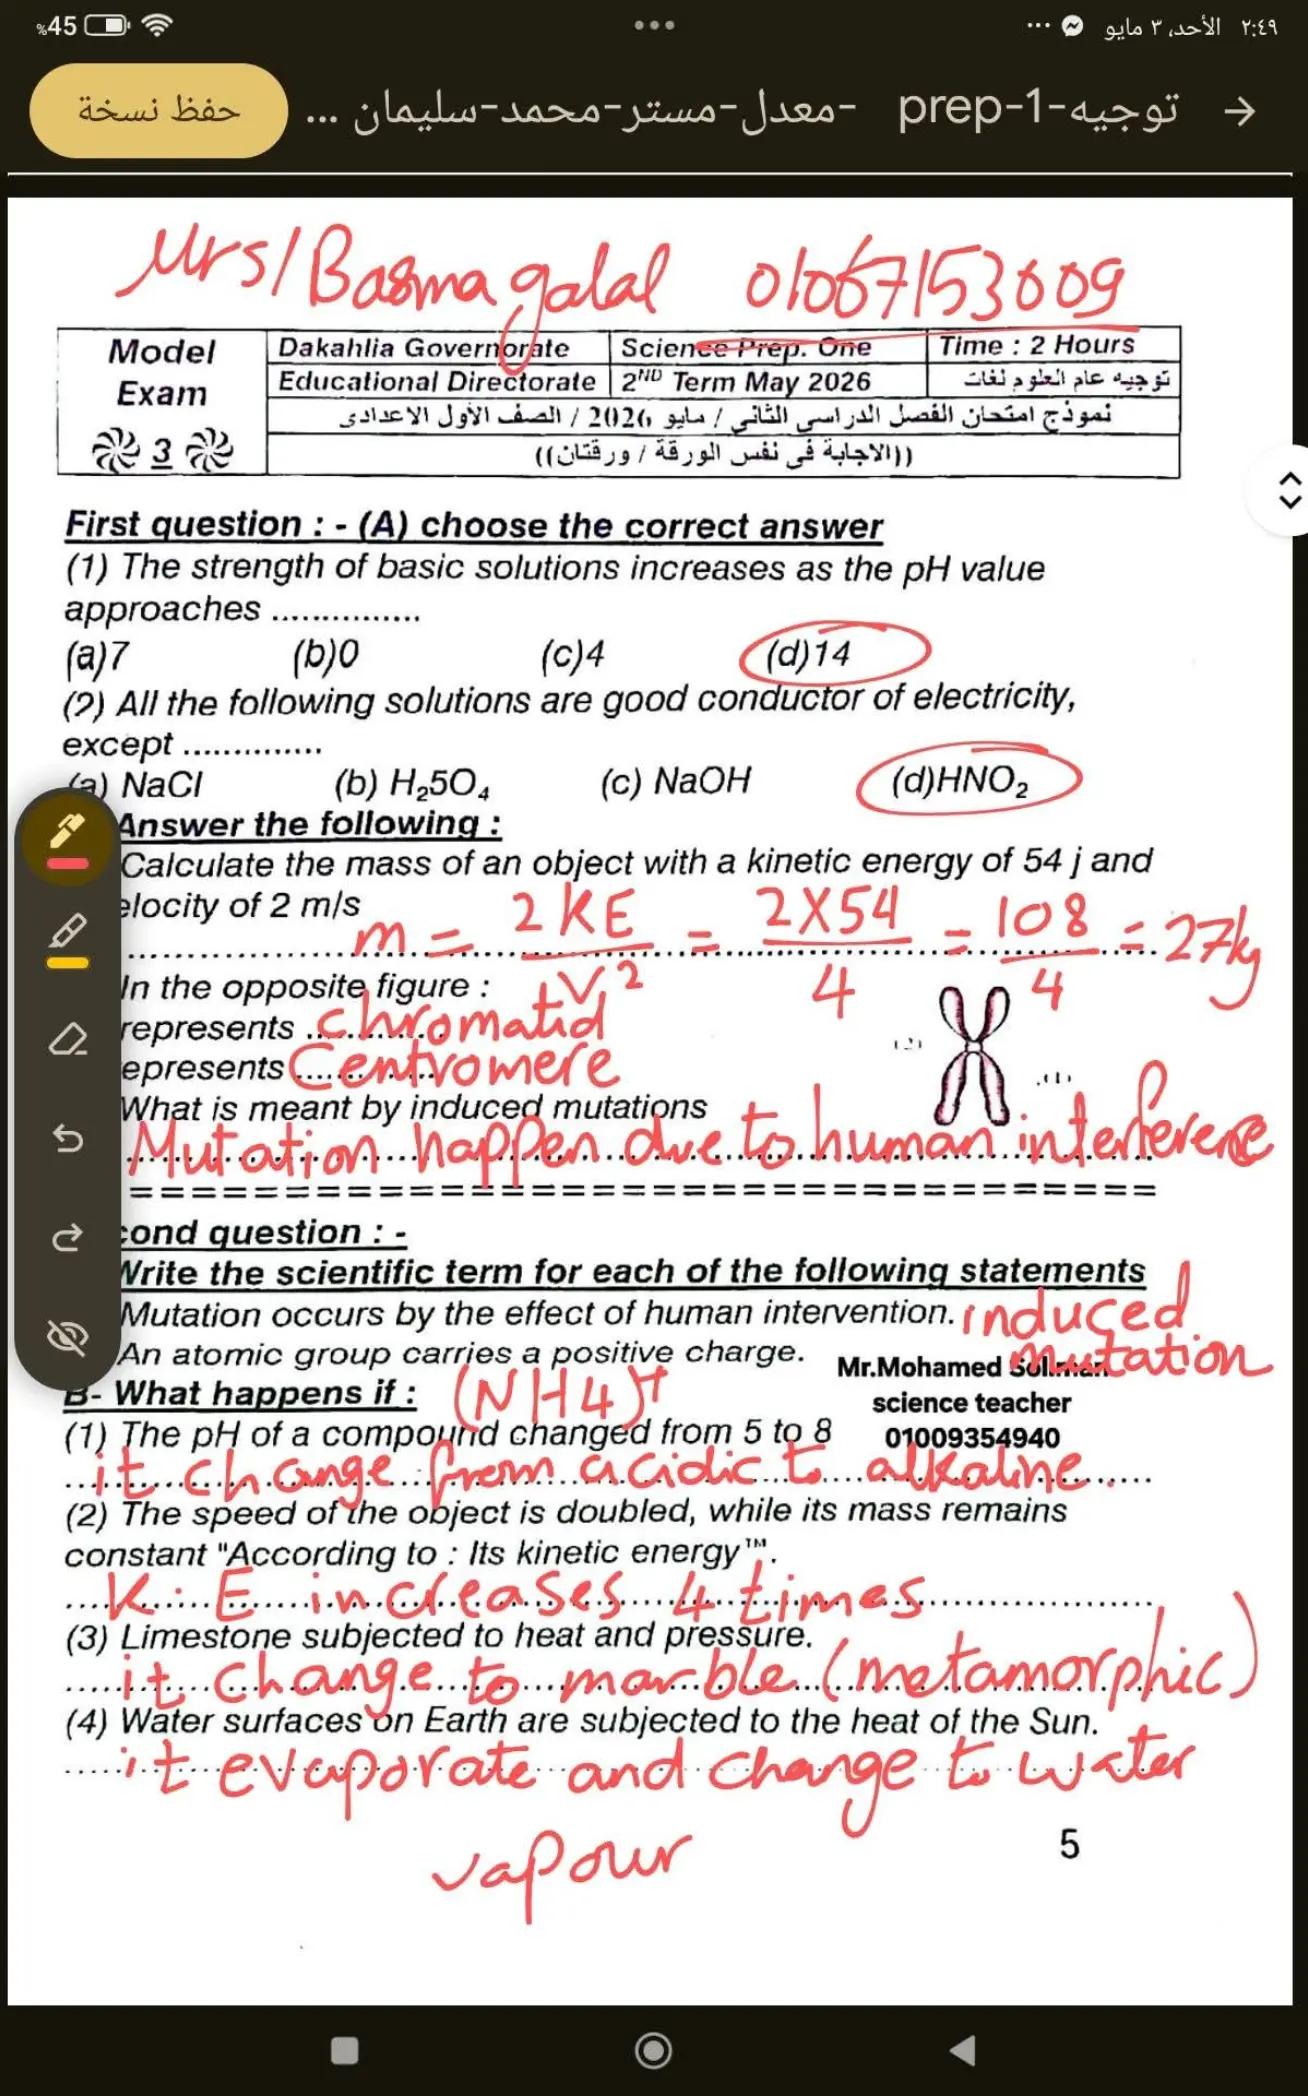 %45
٢:٤٩ الأحد، ٣ مايو
توجيه-prep-1 -معدل-مستر-محمد-سليمان ...
حفظ نسخة
Mrs/Basma galal 01067153609
Model Exam 3
Dakahlia Governorate
Science Prep. One
Time : 2 Hours
Educational Directorate
2ND Term May 2026
توجيه عام العلوم لغات
نموذج امتحان الفصل الدراسي الثاني / مايو 2026 / الصف الأول الاعدادى
((الاجابة فى نفس الورقة / ورقتان))
First question : - (A) choose the correct answer
(1) The strength of basic solutions increases as the pH value
approaches ...............
(a)7 (b)0 (c)4 (d)14
(2) All the following solutions are good conductor of electricity,
except ..............
(a) NaCl (b) H₂5O₄ (c) NaOH (d)HNO₂
Answer the following :
Calculate the mass of an object with a kinetic energy of 54 j and
elocity of 2 m/s
m = 2KE / V² = 2X54 / 4 = 108 / 4 = 27kg
In the opposite figure :
represents ... chromatid
(2)
epresents ... Centromere
(1)
What is meant by induced mutations
Mutation happen due to human interference
==================================
cond question : -
Write the scientific term for each of the following statements
Mutation occurs by the effect of human intervention. induced mutation
An atomic group carries a positive charge. (NH4)+
Mr.Mohamed Soliman
science teacher
01009354940
B- What happens if :
(1) The pH of a compound changed from 5 to 8
it change from acidic to alkaline.
(2) The speed of the object is doubled, while its mass remains
constant "According to : Its kinetic energy™.
K.E increases 4 times
(3) Limestone subjected to heat and pressure.
it change to marble (metamorphic)
(4) Water surfaces on Earth are subjected to the heat of the Sun.
it evaporate and change to water
vapour
5